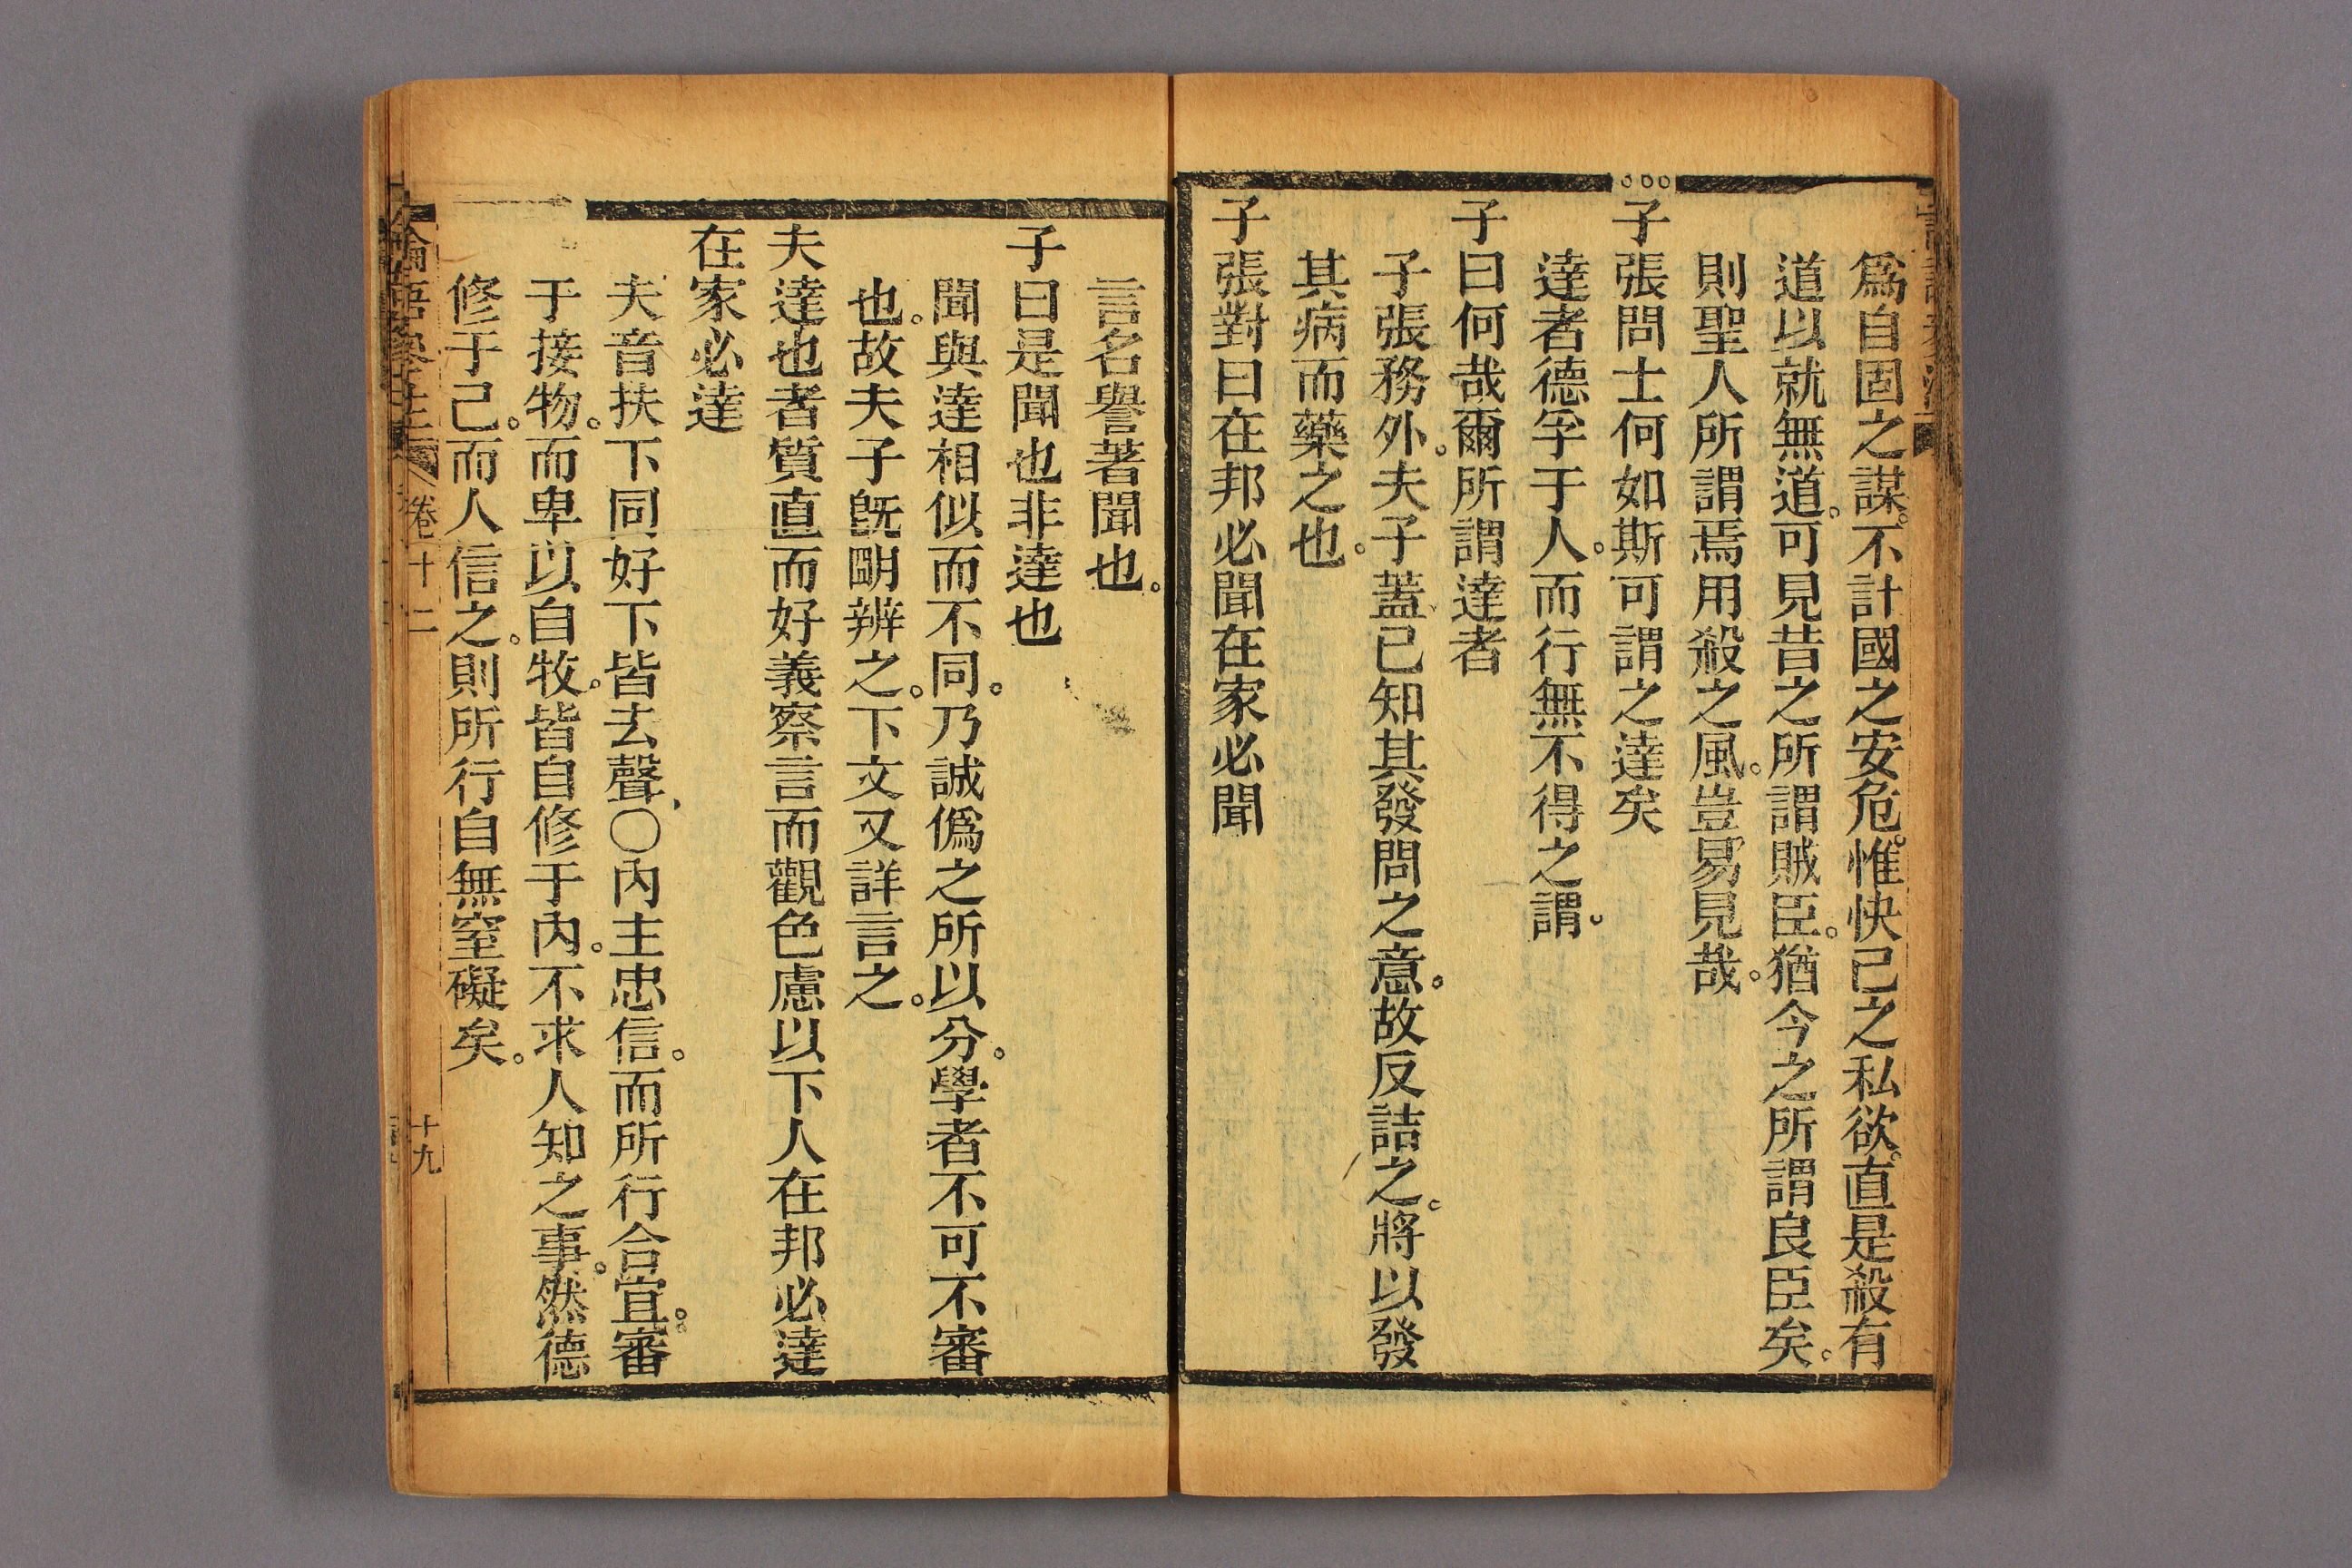 爲自固之謀。不計國之安危。惟快己之私欲。直是殺有
道以就無道。可見昔之所謂賊臣。猶今之所謂良臣矣。
則聖人所謂焉用殺之風。豈易見哉。
子張問士何如斯可謂之達矣
達者德孚于人。而行無不得之謂。
子曰何哉爾所謂達者
子張務外。夫子蓋已知其發問之意。故反詰之。將以發
其病而藥之也。
子張對曰在邦必聞在家必聞
言名譽著聞也。
子曰是聞也非達也
聞與達相似而不同。乃誠僞之所以分。學者不可不審
也。故夫子旣明辨之。下文又詳言之。
夫達也者質直而好義察言而觀色慮以下人在邦必達
在家必達
夫音扶下同好下皆去聲、〇內主忠信。而所行合宜。審
于接物。而卑以自牧。皆自修于內。不求人知之事。然德
修于己。而人信之。則所行自無窒礙矣。
卷十二
十九